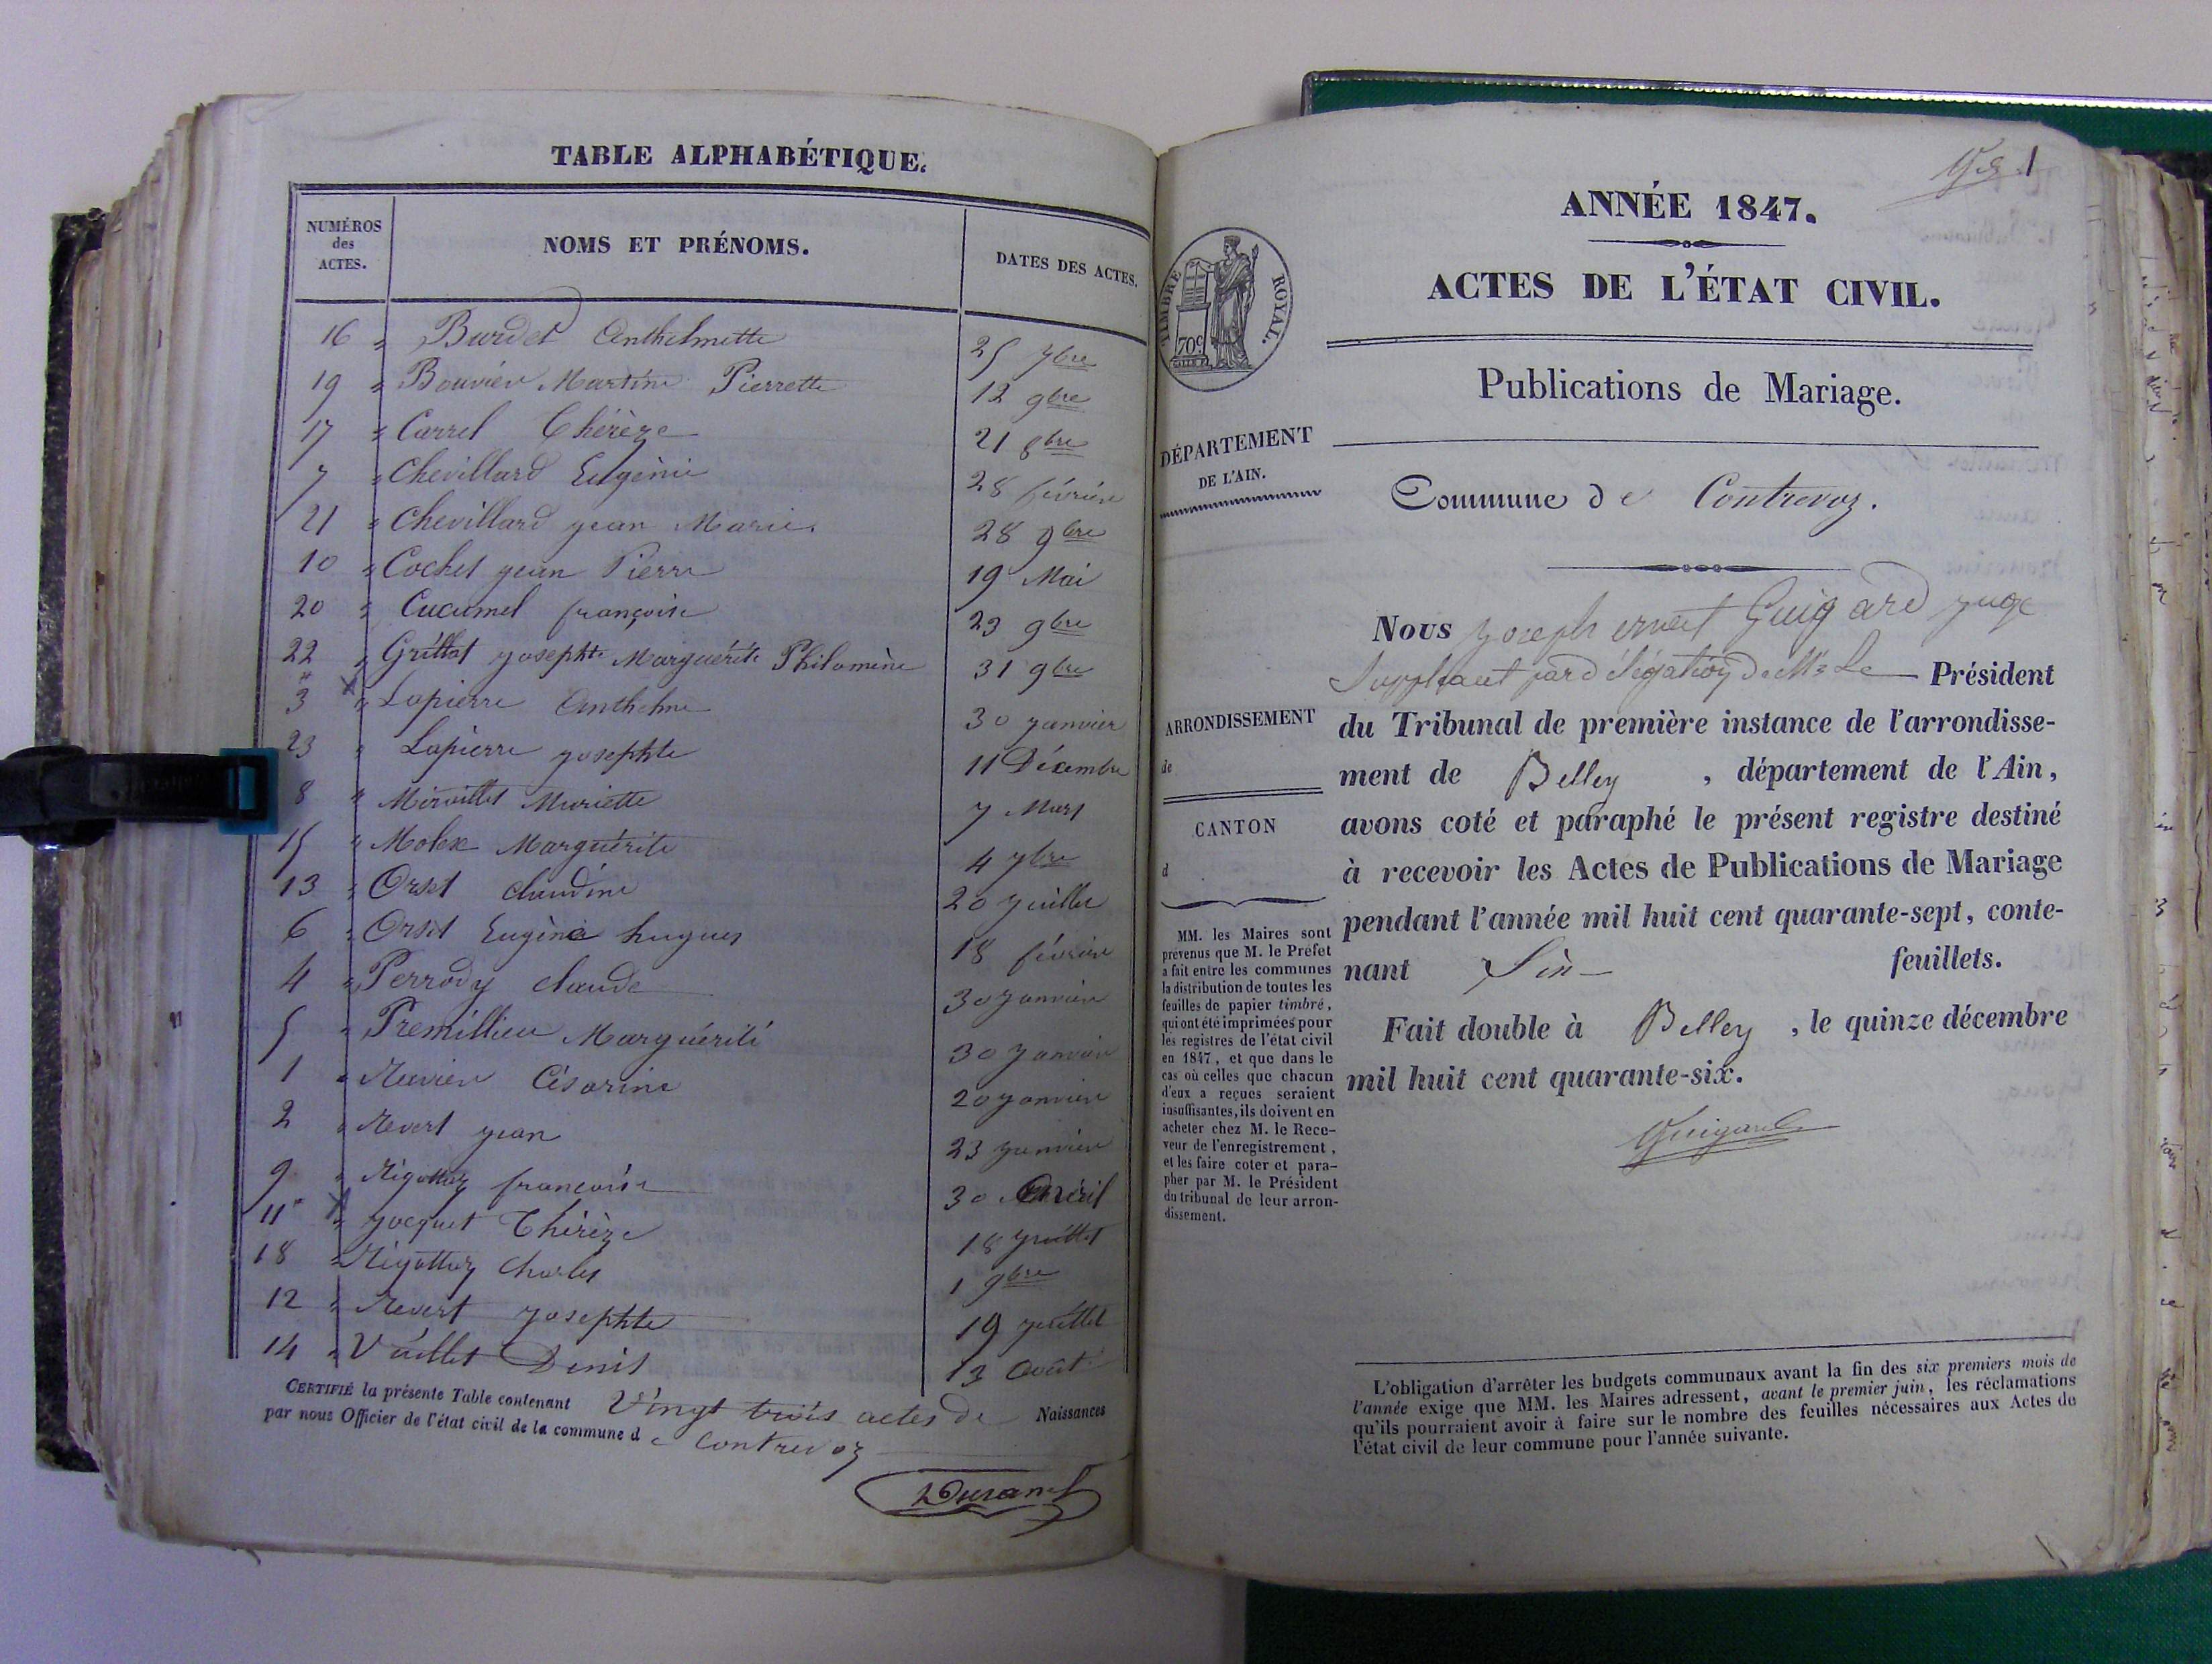 TABLE ALPHABÉTIQUE.
NUMÉROS des ACTES.
NOMS ET PRÉNOMS.
DATES DES ACTES.
16 " Burdet Anthelmette 25 7bre
19 " Bouvier Martine Pierrette 12 9bre
17 " Carrel Thérèze 21 8bre
7 " Chevillard Eugénie 28 février
21 " Chevillard jean Marie. 28 9bre
10 " Cochet jean Pierre 19 Mai
20 " Cucumel françoise 23 9bre
22 " Grillat josephte Marguérite Philomène 31 9bre
3 " Lapierre Anthelme 30 janvier
23 " Lapierre josephte 11 Décembre
8 " Mariette 7 Mars
15 " Molex Marguérite 4 7bre
13 " Orset claudine 20 juillet
6 " Orset Eugène hugues 18 février
4 " Perrody claude 30 janvier
5 " Premillieu Marguérite 30 janvier
1 " Césarine 20 janvier
2 " Revert jean 23 janvier
9 " Rigottaz françoise 30 Avril
11 " jocquet Thérèze 18 juillet
18 " Rigottaz charles 1 9bre
12 " Revert josephte 19 juillet
14 " Vuillet Denis 13 Août
CERTIFIÉ la présente Table contenant Vingt trois actes de Naissances
par nous Officier de l'état civil de la commune de Contrevoz
Durand
1
ANNÉE 1847.
ACTES DE L'ÉTAT CIVIL.
TIMBRE ROYAL.
70c
Publications de Mariage.
DÉPARTEMENT
DE L'AIN.
Commune de Contrevoz.
Nous joseph ernest Guigard juge
Suppléant par délégation de Mr Le Président
ARRONDISSEMENT
de
du Tribunal de première instance de l'arrondisse-
ment de Belley , département de l'Ain,
CANTON
d
avons coté et paraphé le présent registre destiné
à recevoir les Actes de Publications de Mariage
pendant l'année mil huit cent quarante-sept, conte-
nant Six feuillets.
Fait double à Belley , le quinze décembre
mil huit cent quarante-six.
Guigard
MM. les Maires sont
prévenus que M. le Préfet
a fait entre les communes
la distribution de toutes les
feuilles de papier timbré,
qui ont été imprimées pour
les registres de l'état civil
en 1847, et que dans le
cas où celles que chacun
d'eux a reçues seraient
insuffisantes, ils doivent en
acheter chez M. le Rece-
veur de l'enregistrement,
et les faire coter et para-
pher par M. le Président
du tribunal de leur arron-
dissement.
L'obligation d'arrêter les budgets communaux avant la fin des six premiers mois de
l'année exige que MM. les Maires adressent, avant le premier juin, les réclamations
qu'ils pourraient avoir à faire sur le nombre des feuilles nécessaires aux Actes de
l'état civil de leur commune pour l'année suivante.